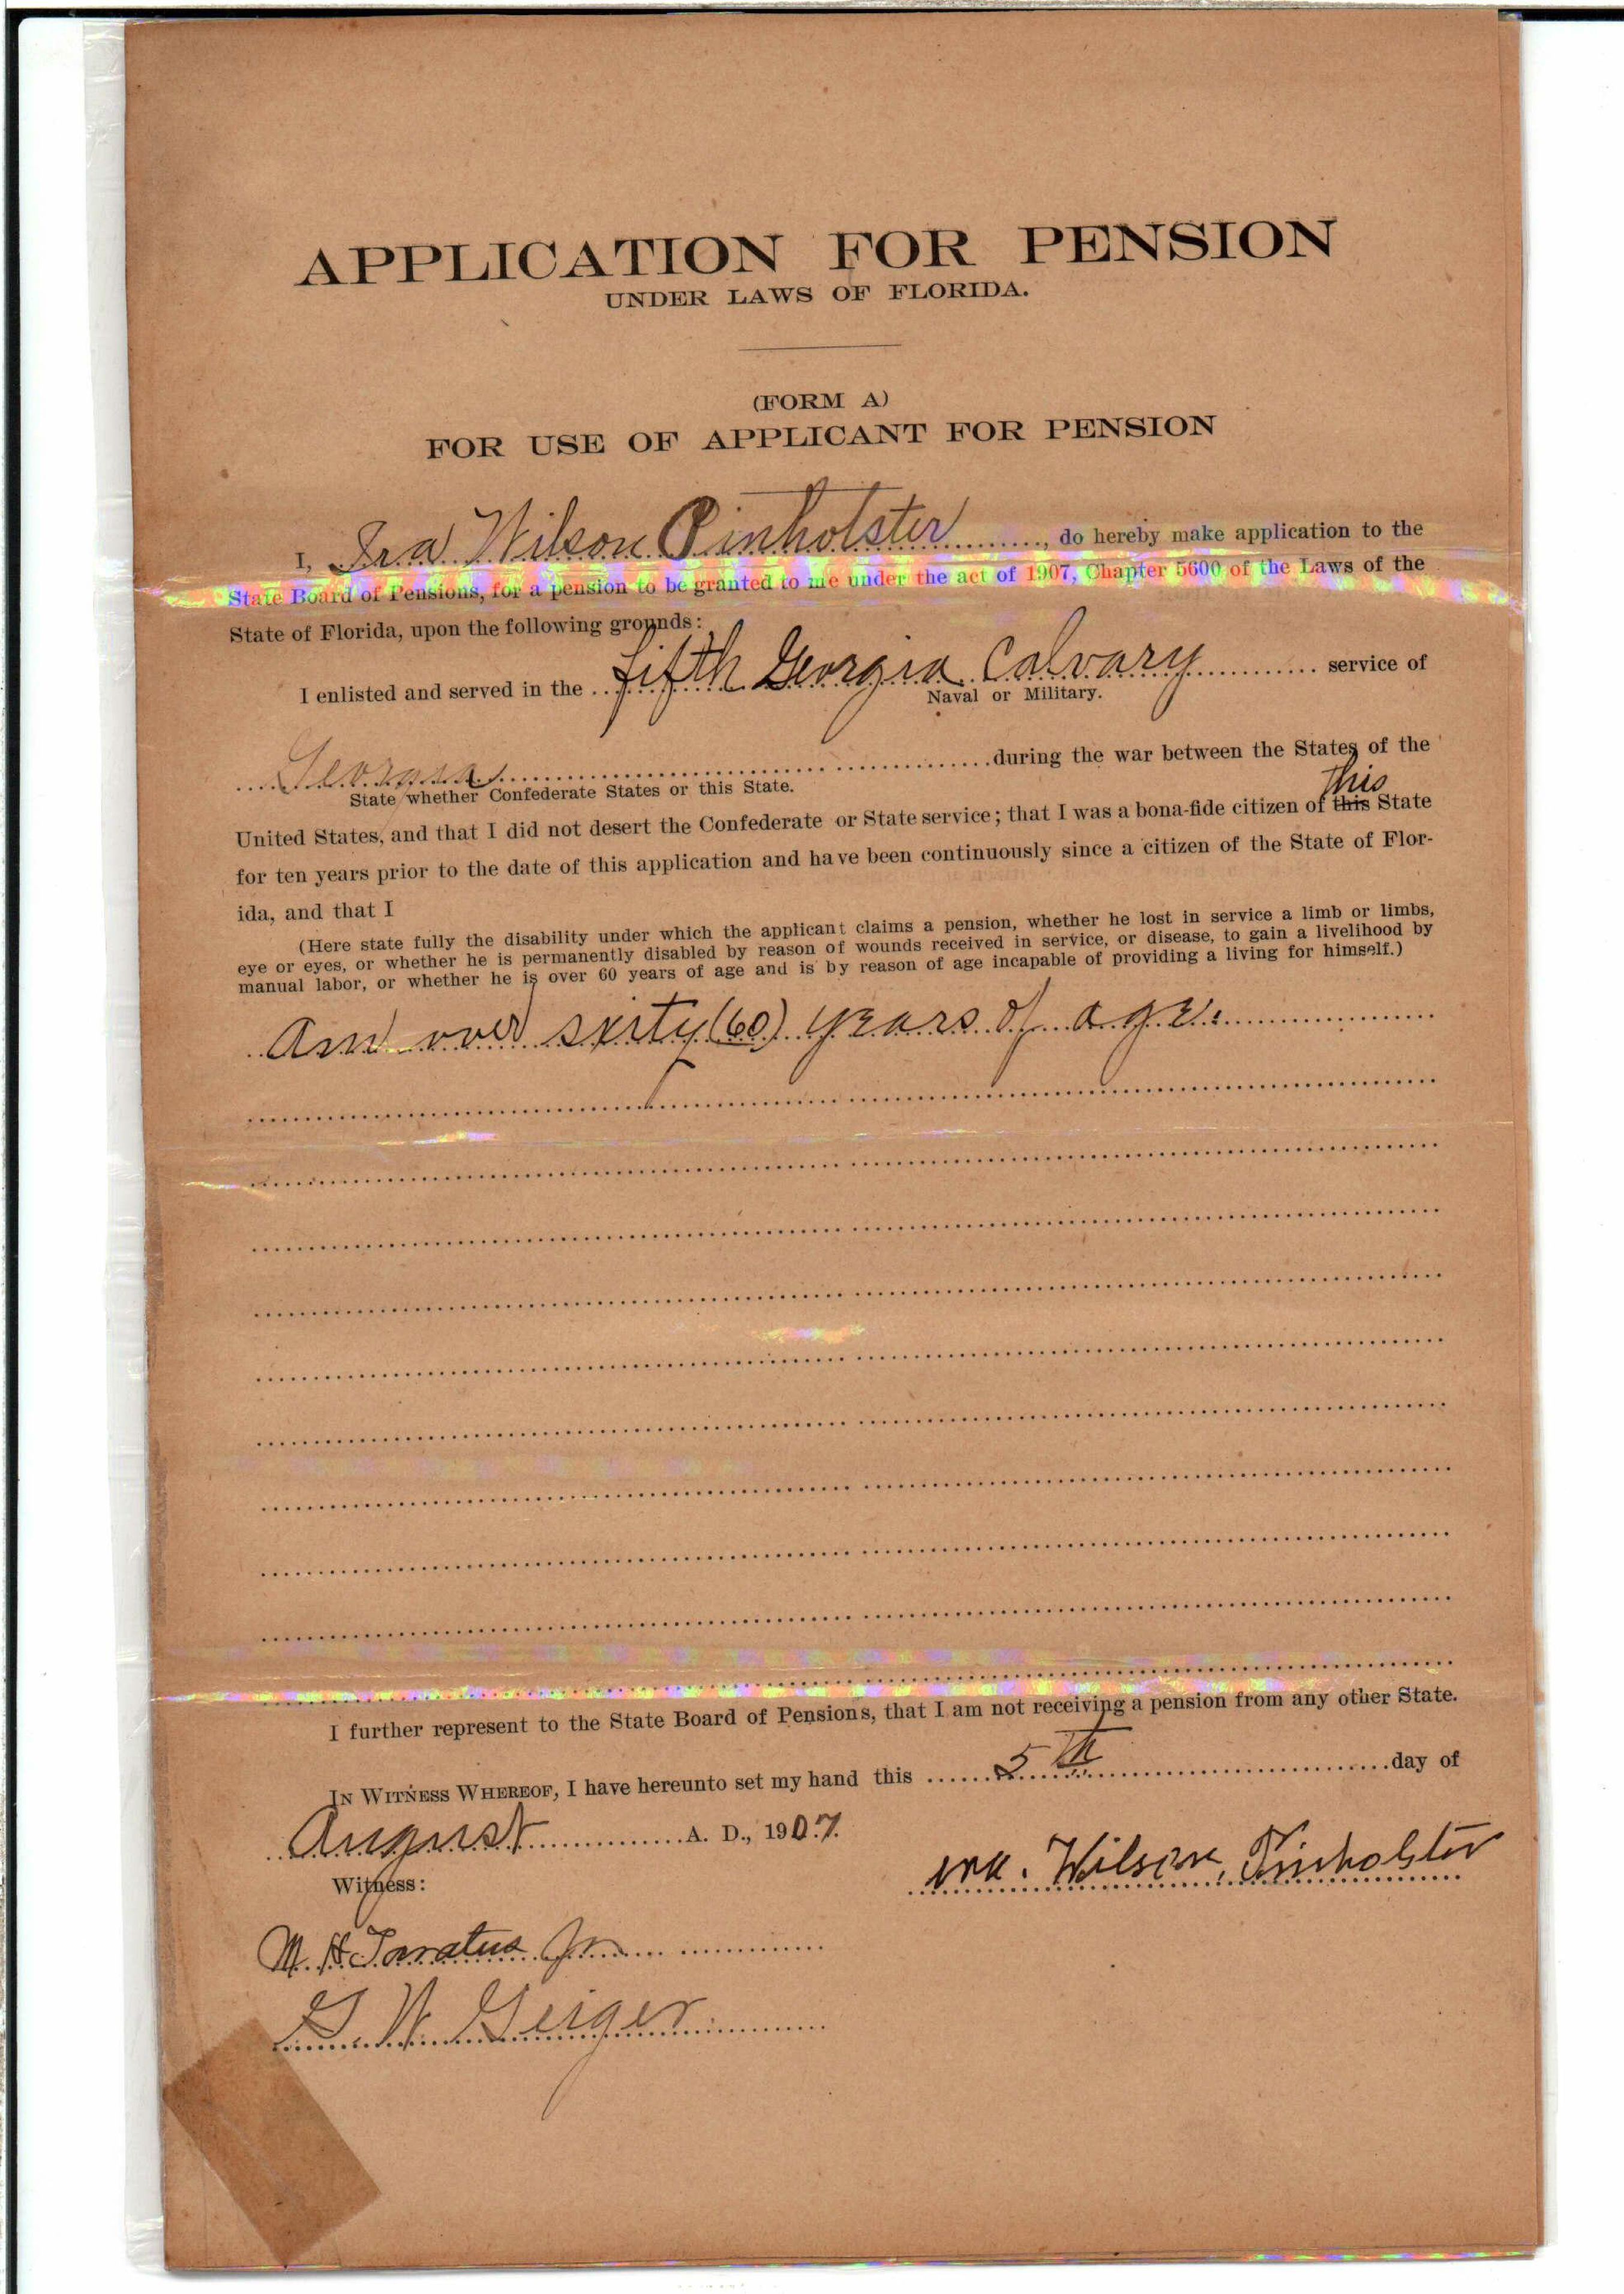 APPLICATION FOR PENSION
UNDER LAWS OF FLORIDA.
(FORM A)
FOR USE OF APPLICANT FOR PENSION
I, Ira Wilson Pinholster, do hereby make application to the
State Board of Pensions, for a pension to be granted to me under the act of 1907, Chapter 5600 of the Laws of the
State of Florida, upon the following grounds:
I enlisted and served in the fifth Georgia Calvary service of
Naval or Military.
Georgia during the war between the States of the
State whether Confederate States or this State.
this
United States, and that I did not desert the Confederate or State service; that I was a bona-fide citizen of this State
for ten years prior to the date of this application and have been continuously since a citizen of the State of Flor-
ida, and that I
(Here state fully the disability under which the applicant claims a pension, whether he lost in service a limb or limbs,
eye or eyes, or whether he is permanently disabled by reason of wounds received in service, or disease, to gain a livelihood by
manual labor, or whether he is over 60 years of age and is by reason of age incapable of providing a living for himself.)
Am over sixty (60) years of age.
I further represent to the State Board of Pensions, that I am not receiving a pension from any other State.
IN WITNESS WHEREOF, I have hereunto set my hand this 5th day of
August A. D., 1907.
Wilson Pinholster
Witness:
M. H. Jr
G. W. Geiger